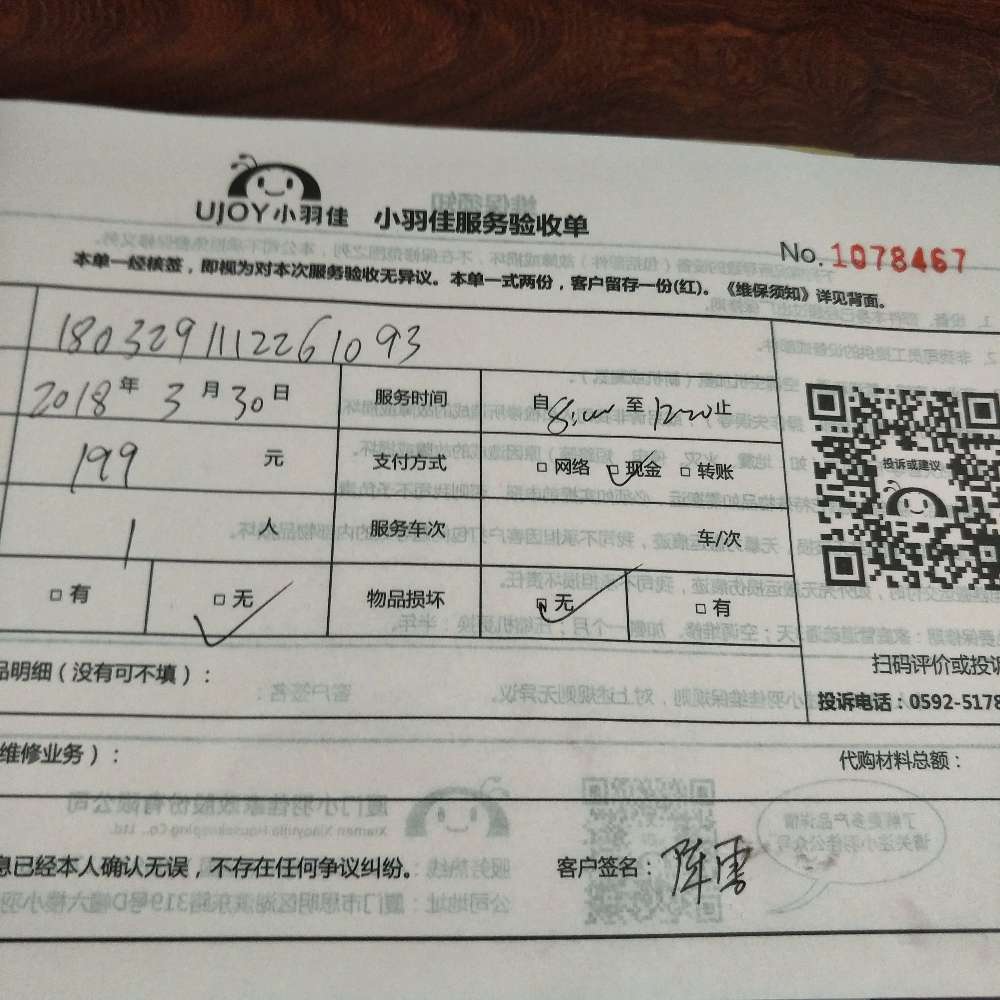 UJOY小羽佳 小羽佳服务验收单
No.1078467
本单一经核签，即视为对本次服务验收无异议。本单一式两份，客户留存一份(红)。《维保须知》详见背面。
1803291112261093
2018年3月30日 服务时间 自8:00至12:00止
199元 支付方式 □网络 □现金 □转账
1人 服务车次 车/次
□有 □无 物品损坏 □无 □有
投诉或建议
扫码评价或投诉
品明细（没有可不填）：
投诉电话：0592-5178
维修业务）：
代购材料总额：
息已经本人确认无误，不存在任何争议纠纷。 客户签名：